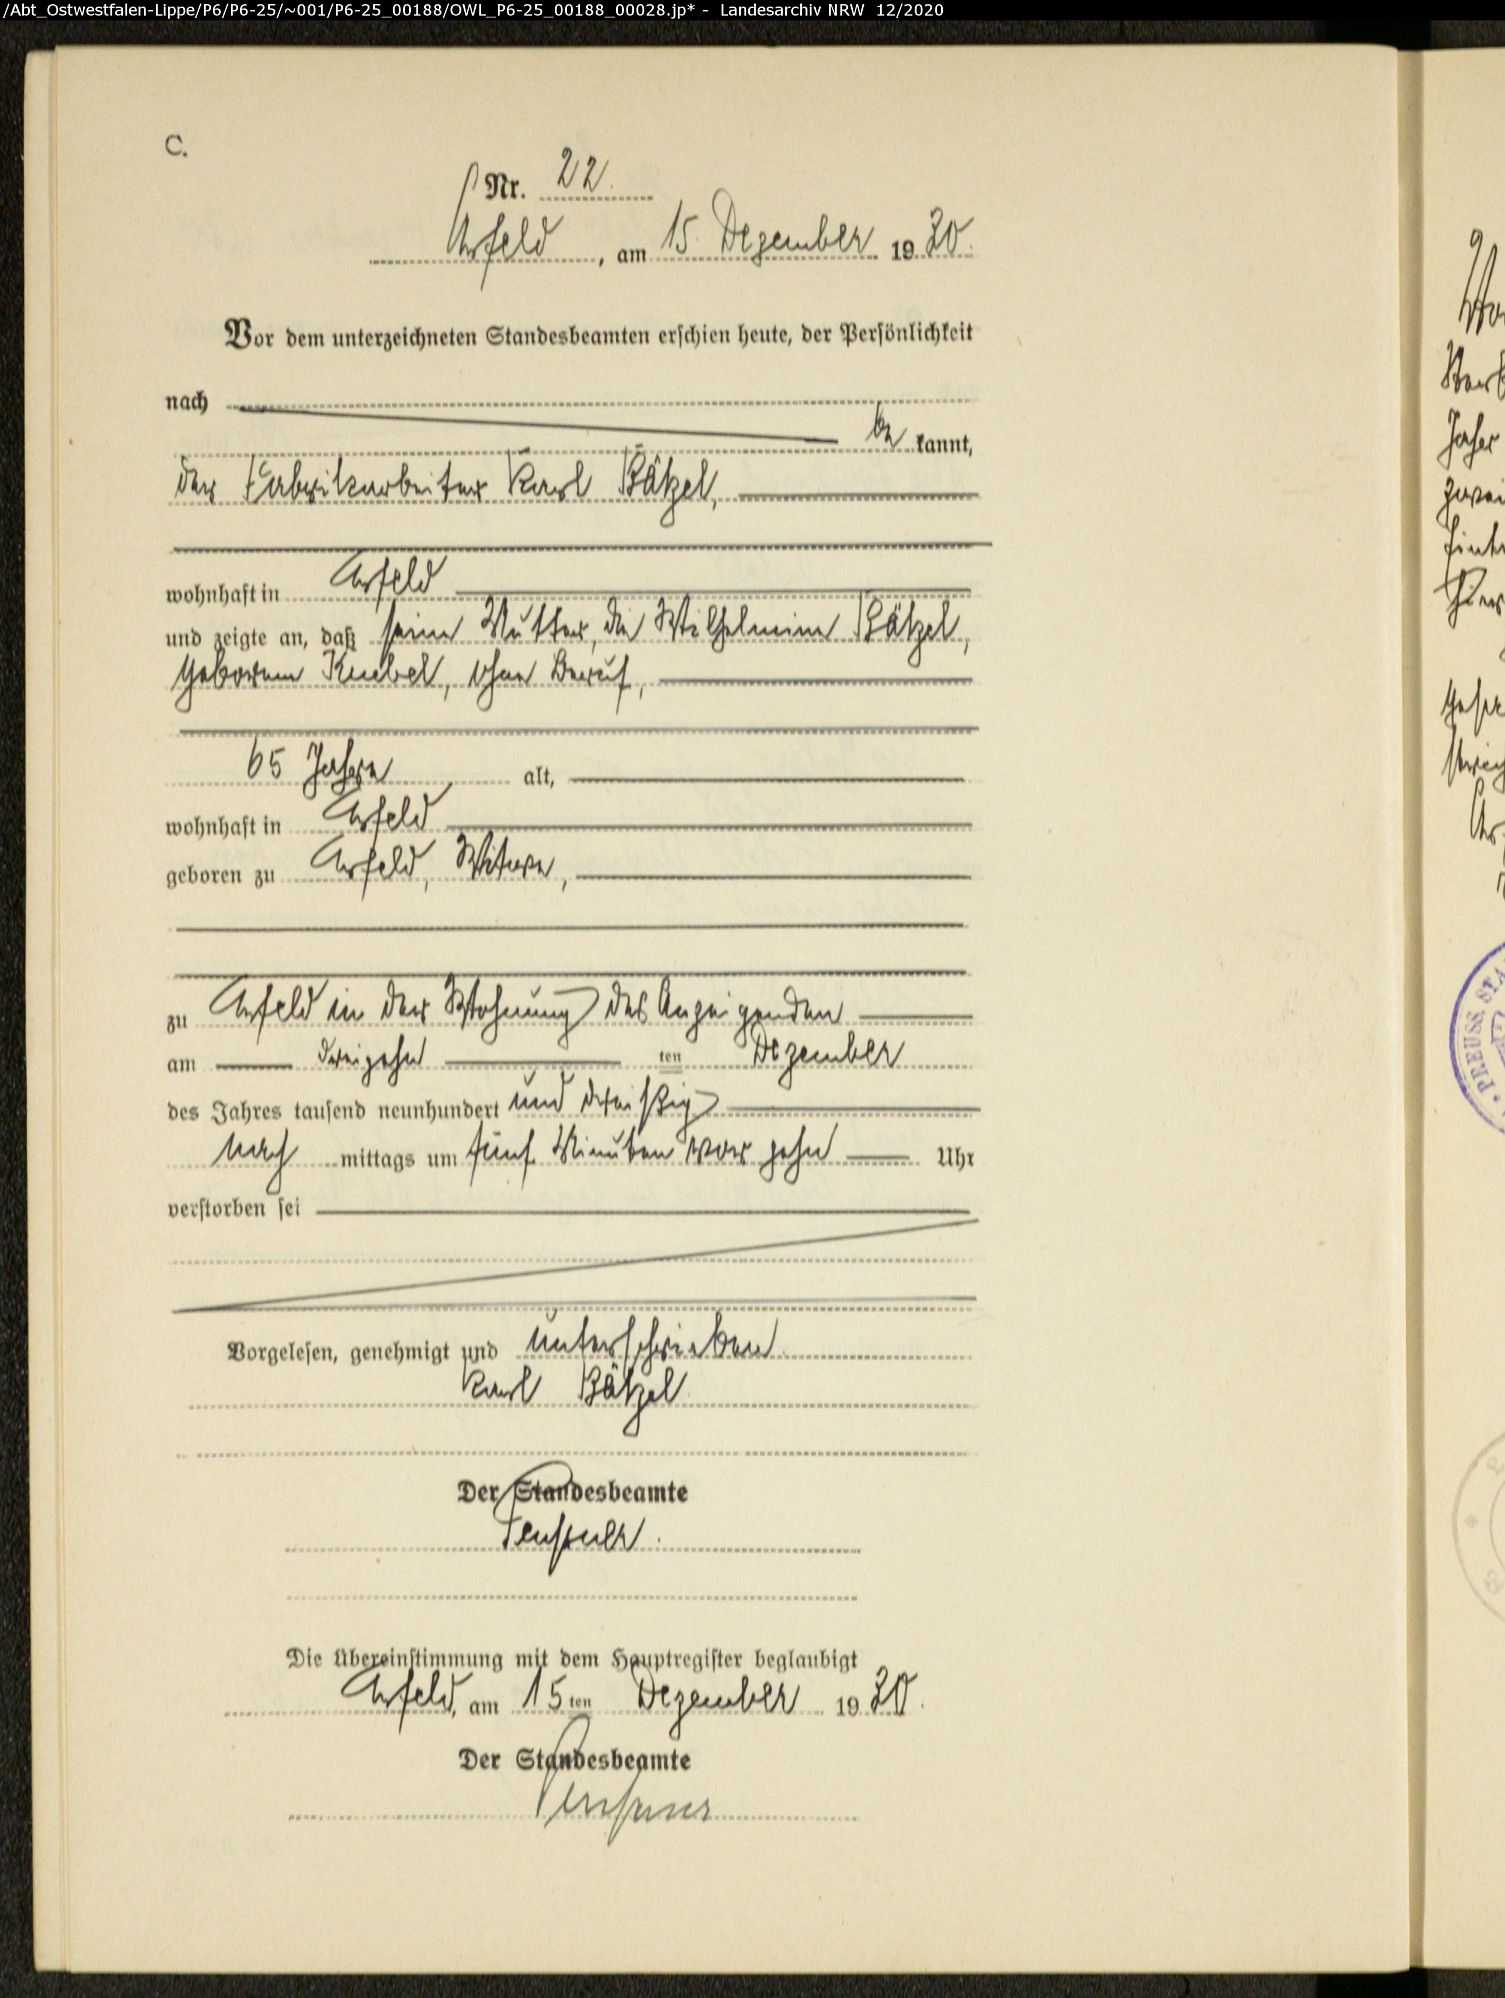 /Abt_Ostwestfalen-Lippe/P6/P6-25/~001/P6-25_00188/OWL_P6-25_00188_00028.jp* - Landesarchiv NRW 12/2020
C.
Nr. 22.
Arfeld, am 15. Dezember 1930.
Vor dem unterzeichneten Standesbeamten erschien heute, der Persönlichkeit
nach
be kannt,
der Fabrikarbeiter Karl Bätzel,
wohnhaft in Arfeld
und zeigte an, daß seine Mutter, die Wilhelmine Bätzel,
geborene Knebel, ohne Beruf,
65 Jahre alt,
wohnhaft in Arfeld
geboren zu Arfeld, Witwe,
zu Arfeld in der Wohnung des Anzeigenden
am dreizehn ten Dezember
des Jahres tausend neunhundert und dreißig
nach mittags um fünf Minuten vor zehn Uhr
verstorben sei
Vorgelesen, genehmigt und unterschrieben.
Karl Bätzel
Der Standesbeamte
Die Übereinstimmung mit dem Hauptregister beglaubigt
Arfeld, am 15ten Dezember 1930.
Der Standesbeamte
PREUSS. STA